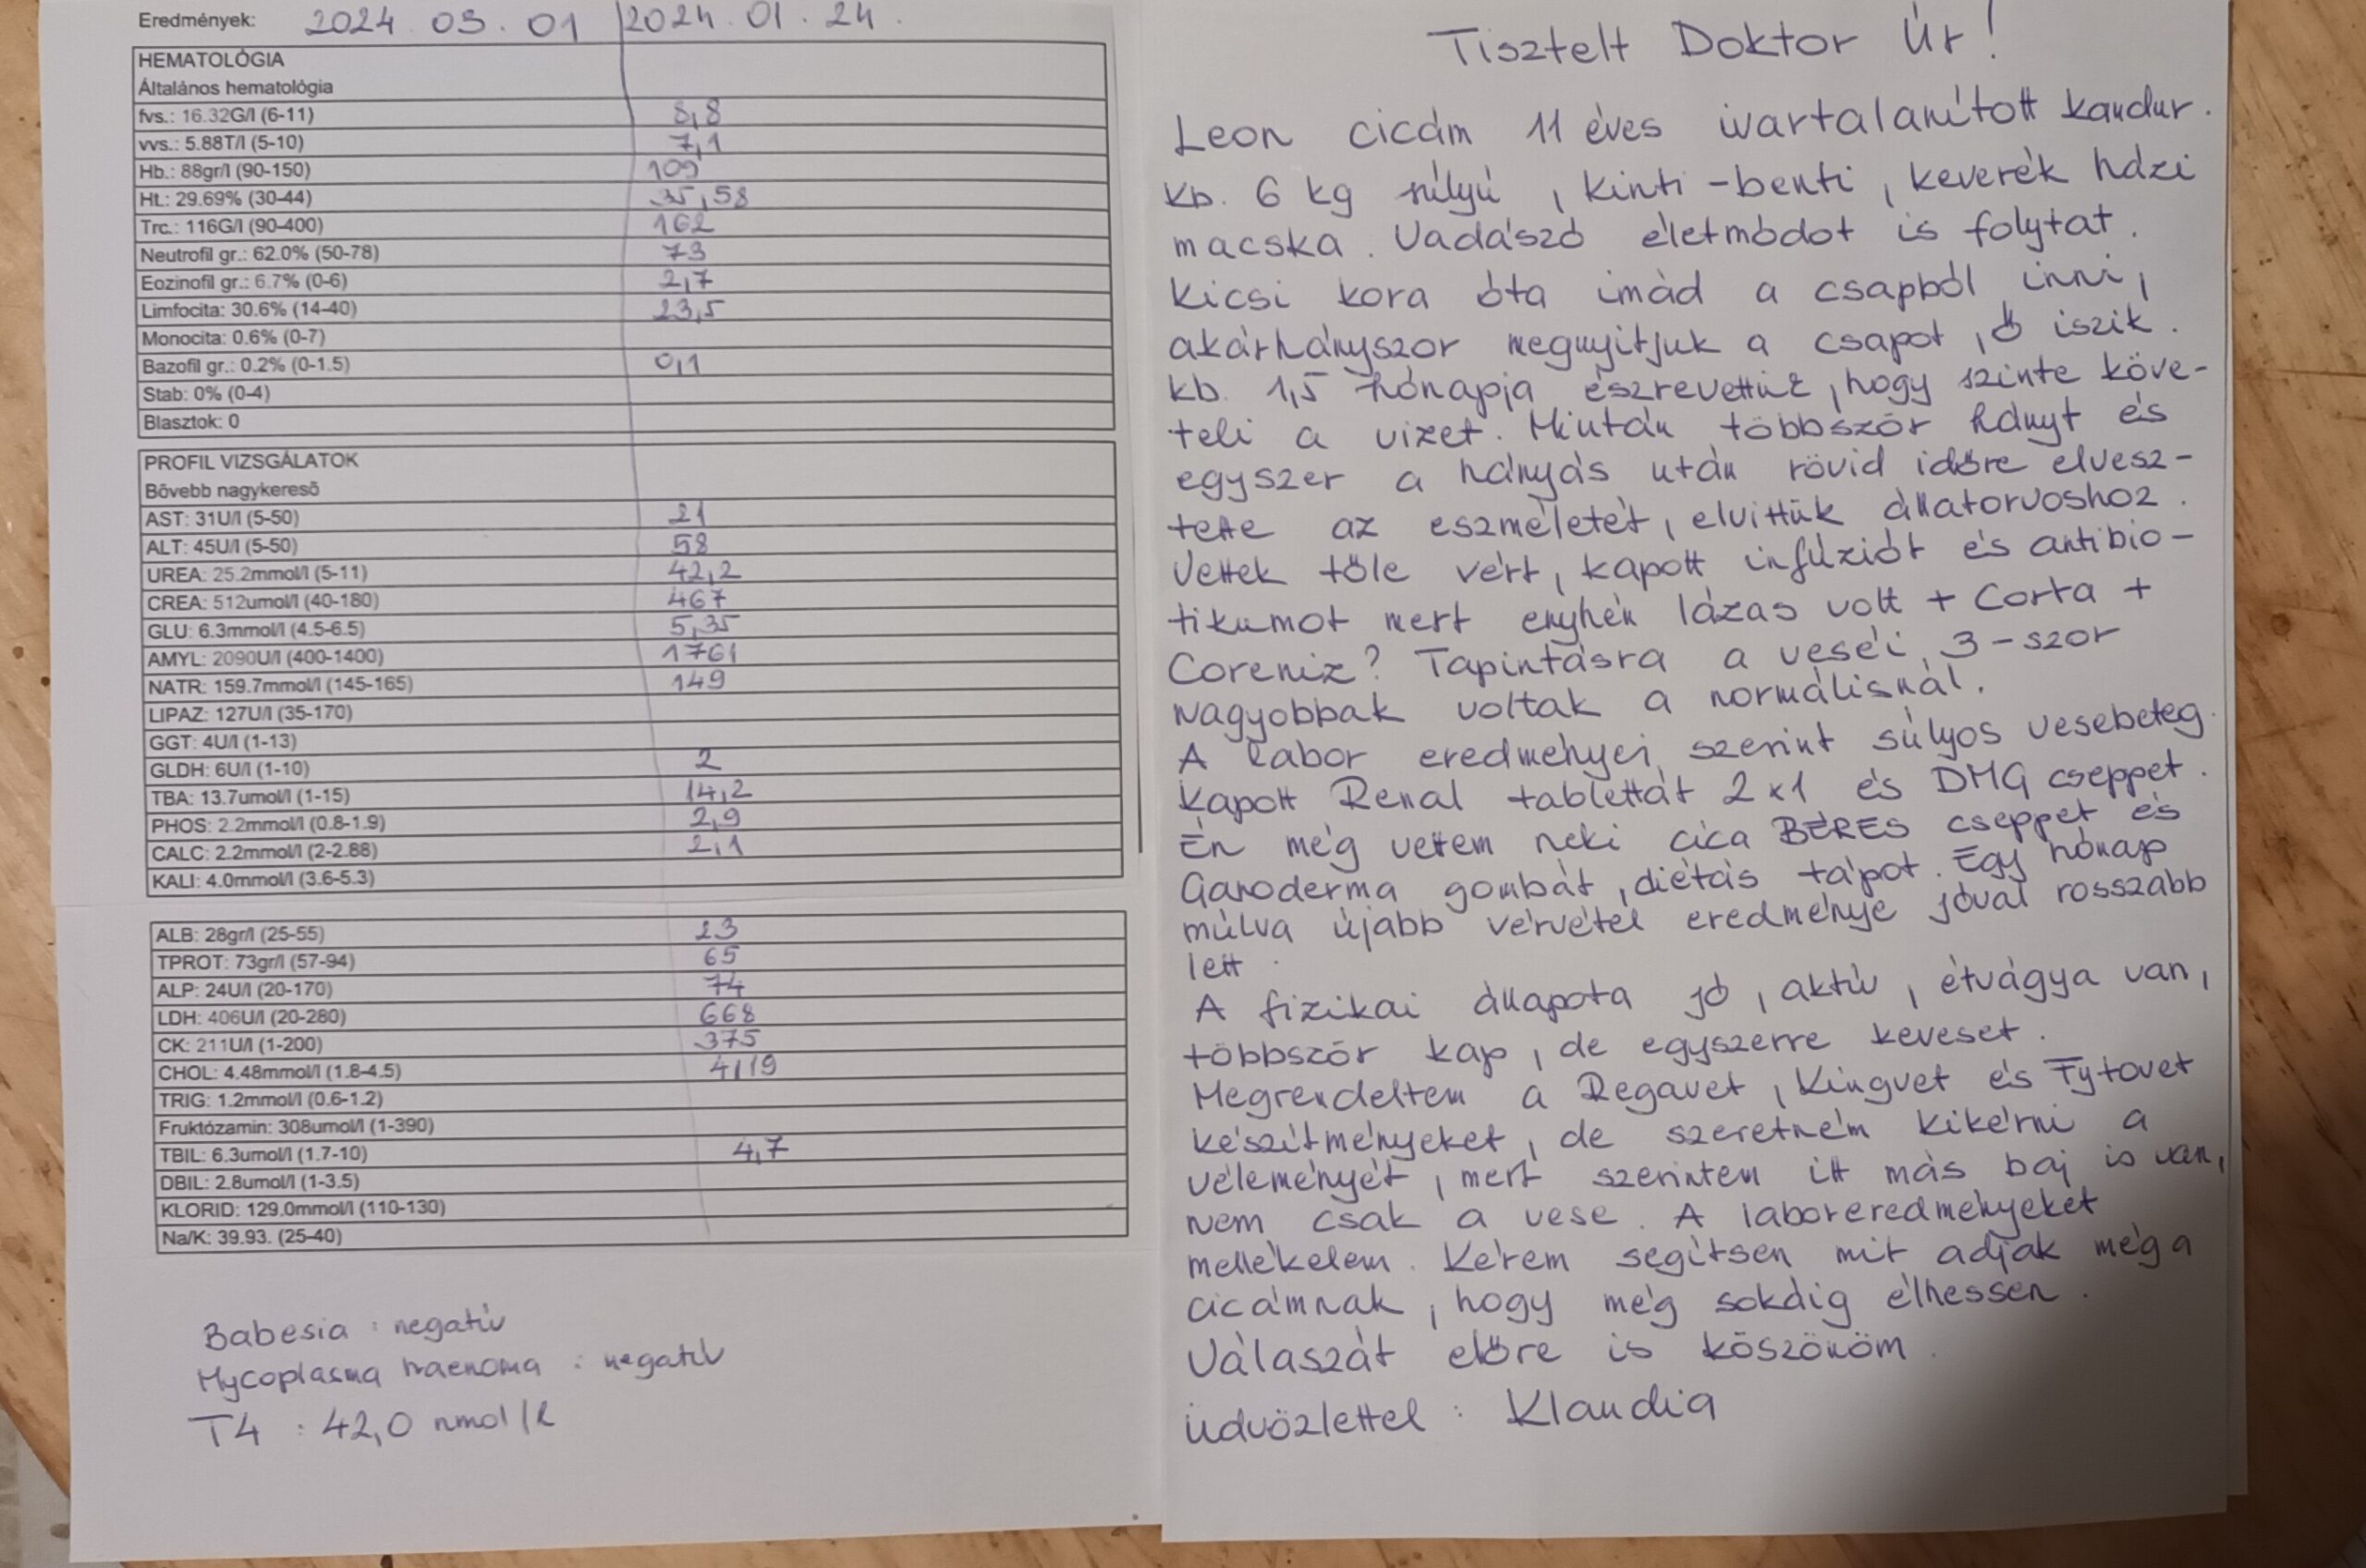 Eredmények: 2024.03.01 2024.01.24.
HEMATOLÓGIA
Általános hematológia
fvs.: 16.32G/l (6-11) 8,8
vvs.: 5.88T/l (5-10) 7,1
Hb.: 88gr/l (90-150) 109
Ht.: 29.69% (30-44) 35,58
Trc.: 116G/l (90-400) 162
Neutrofil gr.: 62.0% (50-78) 73
Eozinofil gr.: 6.7% (0-6) 2,7
Limfocita: 30.6% (14-40) 23,5
Monocita: 0.6% (0-7)
Bazofil gr.: 0.2% (0-1.5) 0,1
Stab: 0% (0-4)
Blasztok: 0
PROFIL VIZSGÁLATOK
Bővebb nagykereső
AST: 31U/l (5-50) 21
ALT: 45U/l (5-50) 58
UREA: 25.2mmol/l (5-11) 42,2
CREA: 512umol/l (40-180) 467
GLU: 6.3mmol/l (4.5-6.5) 5,35
AMYL: 2090U/l (400-1400) 1761
NATR: 159.7mmol/l (145-165) 149
LIPAZ: 127U/l (35-170)
GGT: 4U/l (1-13)
GLDH: 6U/l (1-10) 2
TBA: 13.7umol/l (1-15) 14,2
PHOS: 2.2mmol/l (0.8-1.9) 2,9
CALC: 2.2mmol/l (2-2.88) 2,1
KALI: 4.0mmol/l (3.6-5.3)
ALB: 28gr/l (25-55) 23
TPROT: 73gr/l (57-94) 65
ALP: 24U/l (20-170) 74
LDH: 406U/l (20-280) 668
CK: 211U/l (1-200) 375
CHOL: 4.48mmol/l (1.8-4.5) 4,19
TRIG: 1.2mmol/l (0.6-1.2)
Fruktózamin: 308umol/l (1-390)
TBIL: 6.3umol/l (1.7-10) 4,7
DBIL: 2.8umol/l (1-3.5)
KLORID: 129.0mmol/l (110-130)
Na/K: 39.93. (25-40)
Babesia : negatív
Mycoplasma haemoma : negatív
T4 : 42,0 nmol/l
Tisztelt Doktor Úr!
Leon cicám 11 éves ivartalanított kandur.
kb. 6 kg súlyú, kinti-benti, keverék házi
macska. Vadászó életmódot is folytat.
Kicsi kora óta imád a csapból inni,
akárhányszor megnyitjuk a csapot, ő iszik.
kb. 1,5 hónapja észrevettük, hogy szinte köve-
teli a vizet. Miután többször hányt és
egyszer a hányás után rövid időre elvesz-
tette az eszméletét, elvittük állatorvoshoz.
Vettek tőle vért, kapott infúziót és antibio-
tikumot mert enyhén lázas volt + Corta +
Coreniz? Tapintásra a veséi 3-szor
nagyobbak voltak a normálisnál.
A labor eredményei szerint súlyos vesebeteg.
Kapott Renal tablettát 2x1 és DMG cseppet.
Én még vettem neki cica BÉRES cseppet és
Ganoderma gombát, diétás tápot. Egy hónap
múlva újabb vérvétel eredménye jóval rosszabb
lett.
A fizikai állapota jó, aktív, étvágya van,
többször kap, de egyszerre keveset.
Megrendeltem a Regavet, Kingvet és Fytovet
készítményeket, de szeretném kikérni a
véleményét, mert szerintem itt más baj is van,
nem csak a vese. A laboreredményeket
mellékelem. Kérem segítsen mit adjak még a
cicámnak, hogy még sokáig élhessen.
Válaszát előre is köszönöm.
üdvözlettel: Klaudia